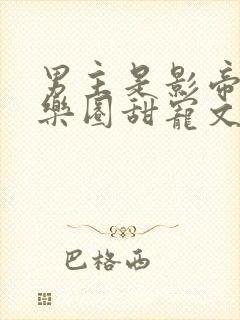 男主是影帝
樂園甜寵文
巴格西